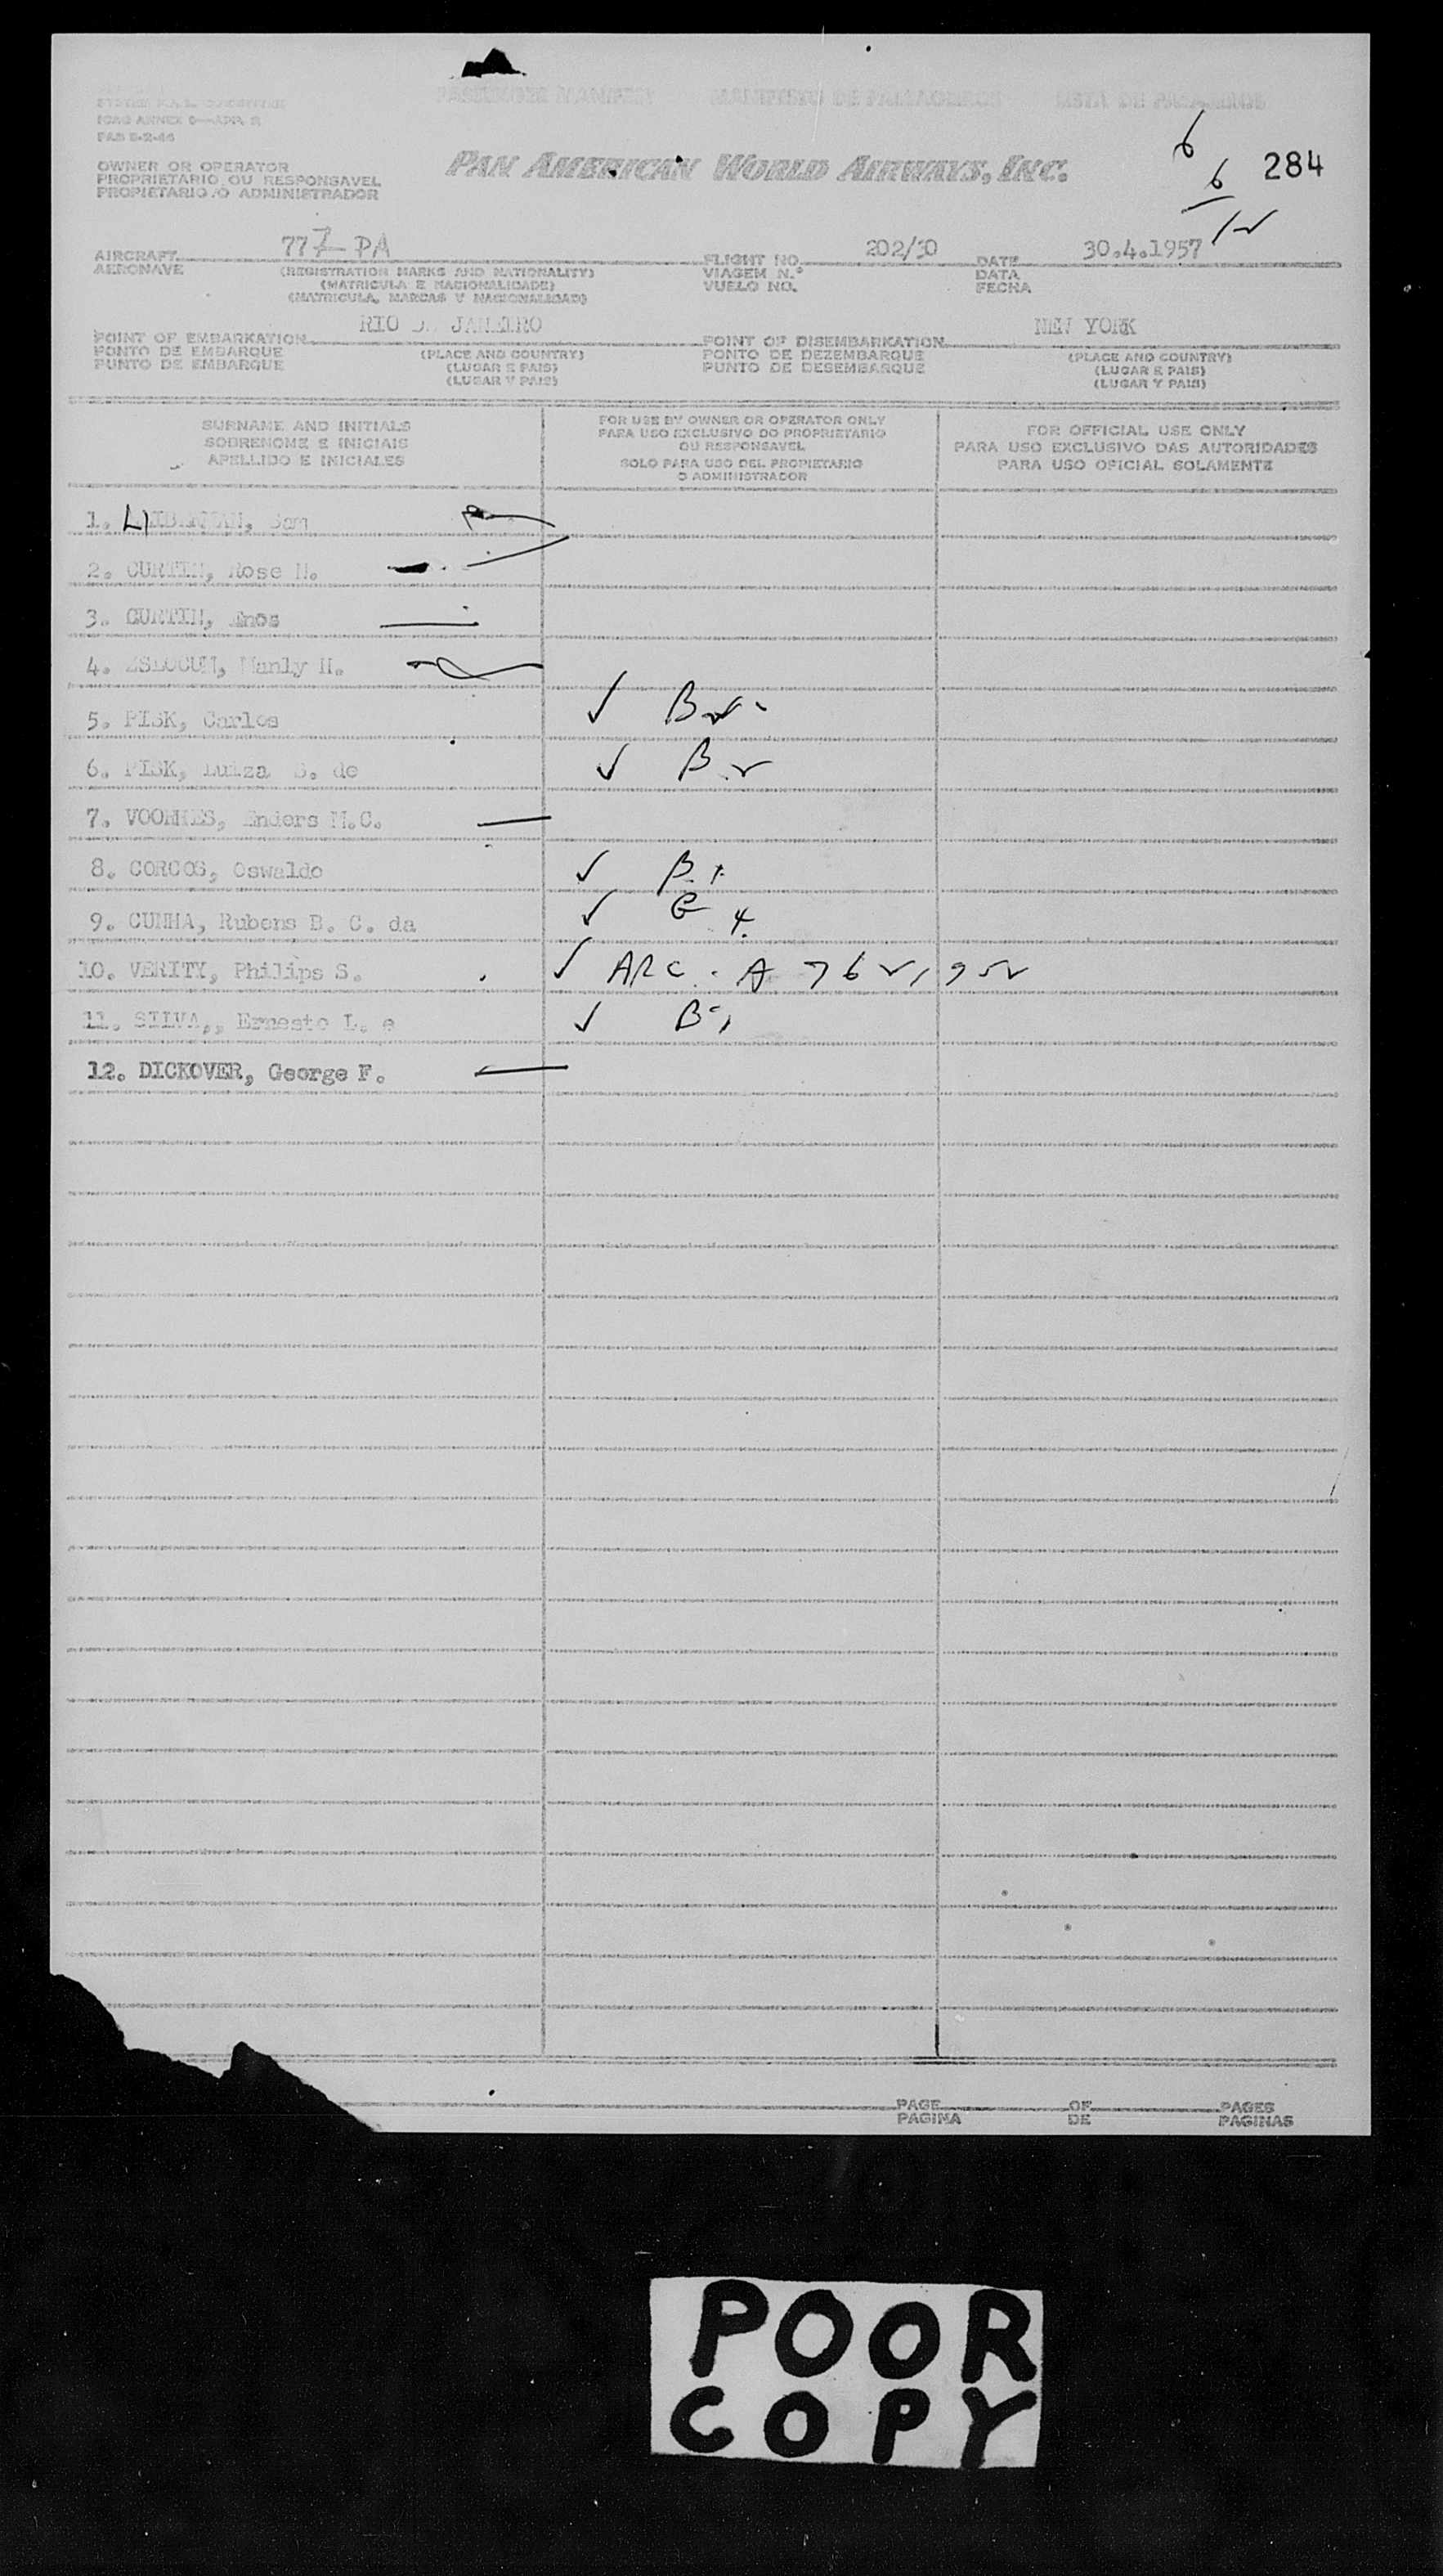 PASSENGER MANIFEST MANIFESTO DE PASSAGEIROS LISTA DE PASAJEROS
ICAO ANNEX 9—APP. 2
PAN AMERICAN WORLD AIRWAYS, INC.
6
6 284
12
OWNER OR OPERATOR
PROPRIETARIO OU RESPONSAVEL
PROPIETARIO /O ADMINISTRADOR
AIRCRAFT 777-PA FLIGHT NO. 202/30 DATE 30.4.1957
AERONAVE (REGISTRATION MARKS AND NATIONALITY) VIAGEM N.º DATA
(MATRICULA E NACIONALIDADE) VUELO NO. FECHA
(MATRICULA, MARCAS Y NACIONALIDAD)
POINT OF EMBARKATION RIO DE JANEIRO POINT OF DISEMBARKATION NEW YORK
PONTO DE EMBARQUE (PLACE AND COUNTRY) PONTO DE DEZEMBARQUE (PLACE AND COUNTRY)
PUNTO DE EMBARQUE (LUGAR E PAIS) PUNTO DE DESEMBARQUE (LUGAR E PAIS)
(LUGAR Y PAIS) (LUGAR Y PAIS)
SURNAME AND INITIALS
SOBRENOME E INICIAIS
APELLIDO E INICIALES
FOR USE BY OWNER OR OPERATOR ONLY
PARA USO EXCLUSIVO DO PROPRIETARIO
OU RESPONSAVEL
SOLO PARA USO DEL PROPIETARIO
O ADMINISTRADOR
FOR OFFICIAL USE ONLY
PARA USO EXCLUSIVO DAS AUTORIDADES
PARA USO OFICIAL SOLAMENTE
1. Sam
2. CURTIN, Rose N.
3. CURTIN, Enos
4. Manly
5. PISK, Carlos ✓
6. PISK, Luiza S. de ✓
7. VOORHES, Enders M.C.
8. CORCOS, Oswaldo ✓
9. CUNHA, Rubens B. C. da ✓
10. VERITY, Philips S. ✓ ARC. A
11. SILVA,, Ernesto L. e ✓
12. DICKOVER, George F.
PAGE OF PAGES
PAGINA DE PAGINAS
POOR
COPY